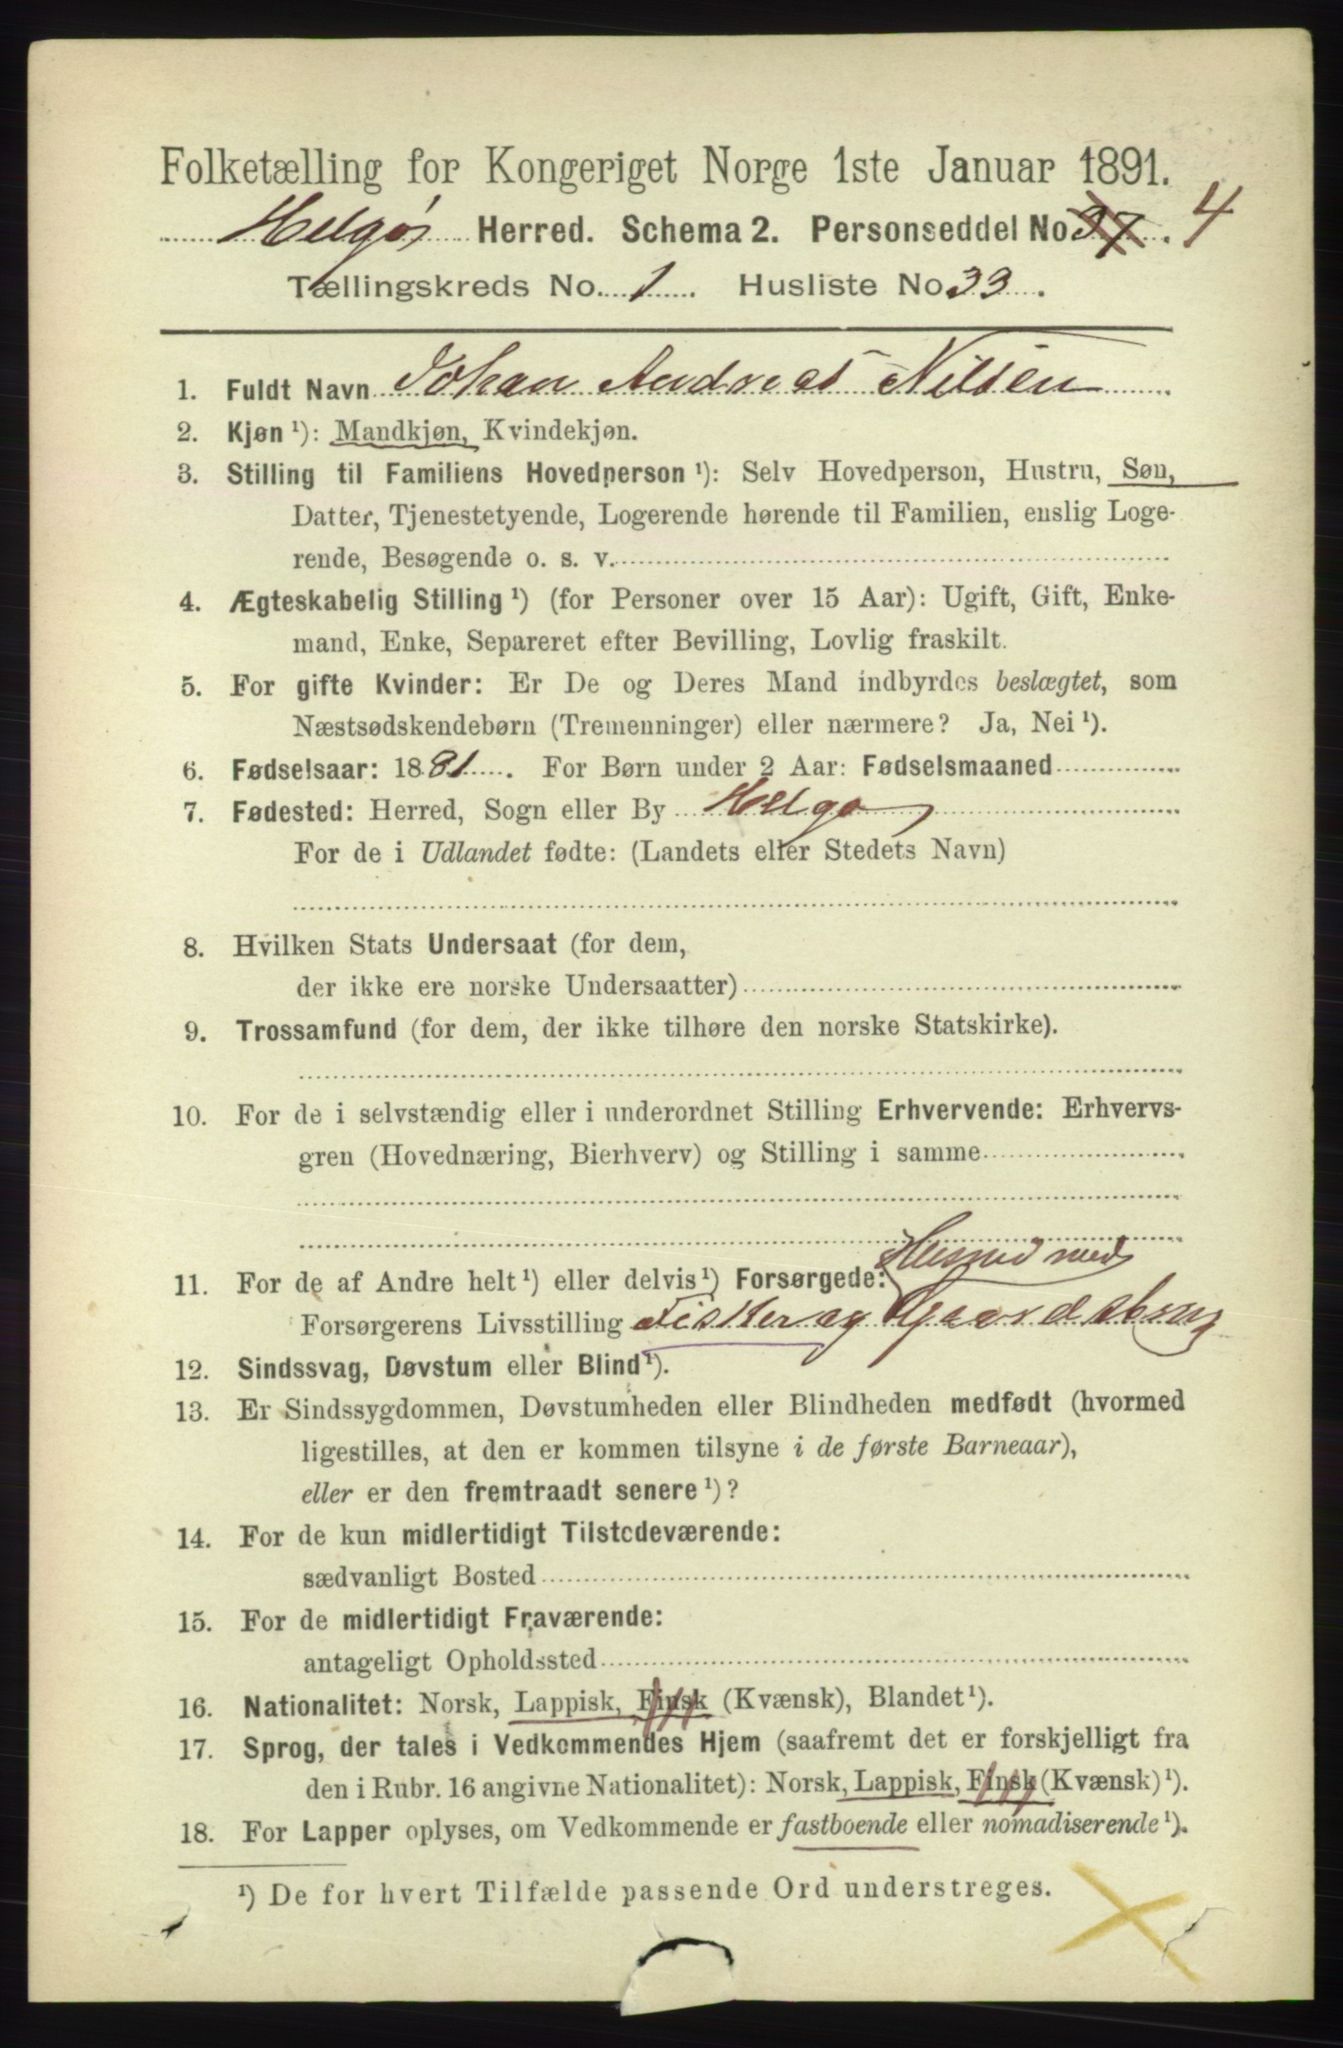 Folketælling for Kongeriget Norge 1ste Januar 1891.
Helgø Herred. Schema 2. Personseddel No 37. 4
Tællingskreds No. 1 Husliste No 33.
1. Fuldt Navn Johan Andreas Nilsen
2. Kjøn ¹): Mandkjøn, Kvindekjøn.
3. Stilling til Familiens Hovedperson ¹): Selv Hovedperson, Hustru, Søn,
Datter, Tjenestetyende, Logerende hørende til Familien, enslig Loge-
rende, Besøgende o. s. v.
4. Ægteskabelig Stilling ¹) (for Personer over 15 Aar): Ugift, Gift, Enke-
mand, Enke, Separeret efter Bevilling, Lovlig fraskilt.
5. For gifte Kvinder: Er De og Deres Mand indbyrdes beslægtet, som
Næstsødskendebørn (Tremenninger) eller nærmere? Ja, Nei ¹).
6. Fødselsaar: 1881. For Børn under 2 Aar: Fødselsmaaned
7. Fødested: Herred, Sogn eller By Helgø
For de i Udlandet fødte: (Landets eller Stedets Navn)
8. Hvilken Stats Undersaat (for dem,
der ikke ere norske Undersaatter)
9. Trossamfund (for dem, der ikke tilhøre den norske Statskirke).
10. For de i selvstændig eller i underordnet Stilling Erhvervende: Erhvervs-
gren (Hovednæring, Bierhverv) og Stilling i samme
Husmd med
11. For de af Andre helt ¹) eller delvis ¹) Forsørgede:
Forsørgerens Livsstilling Fisker og Gaardsbrug
12. Sindssvag, Døvstum eller Blind ¹).
13. Er Sindssygdommen, Døvstumheden eller Blindheden medfødt (hvormed
ligestilles, at den er kommen tilsyne i de første Barneaar),
eller er den fremtraadt senere ¹)?
14. For de kun midlertidigt Tilstedeværende:
sædvanligt Bosted
15. For de midlertidigt Fraværende:
antageligt Opholdssted
16. Nationalitet: Norsk, Lappisk, Finsk (Kvænsk), Blandet ¹).
17. Sprog, der tales i Vedkommendes Hjem (saafremt det er forskjelligt fra
den i Rubr. 16 angivne Nationalitet): Norsk, Lappisk, Finsk (Kvænsk) ¹).
18. For Lapper oplyses, om Vedkommende er fastboende eller nomadiserende ¹).
¹) De for hvert Tilfælde passende Ord understreges.